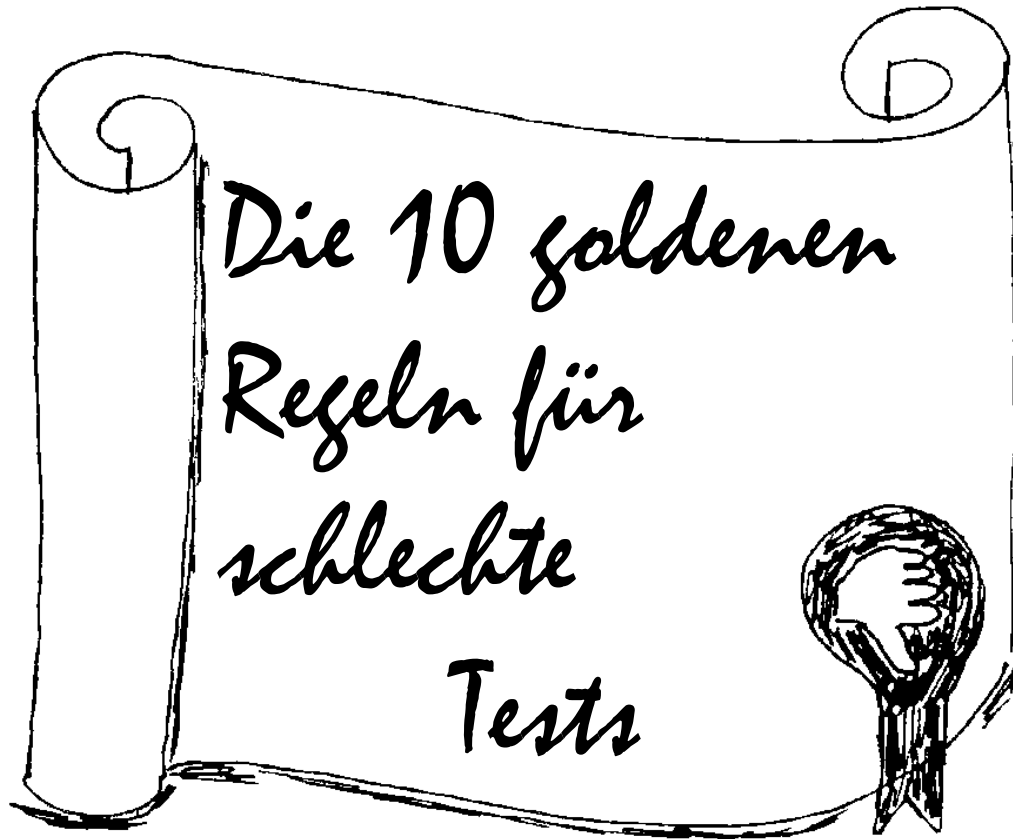 Die 10 goldenen
Regeln für
schlechte
Tests